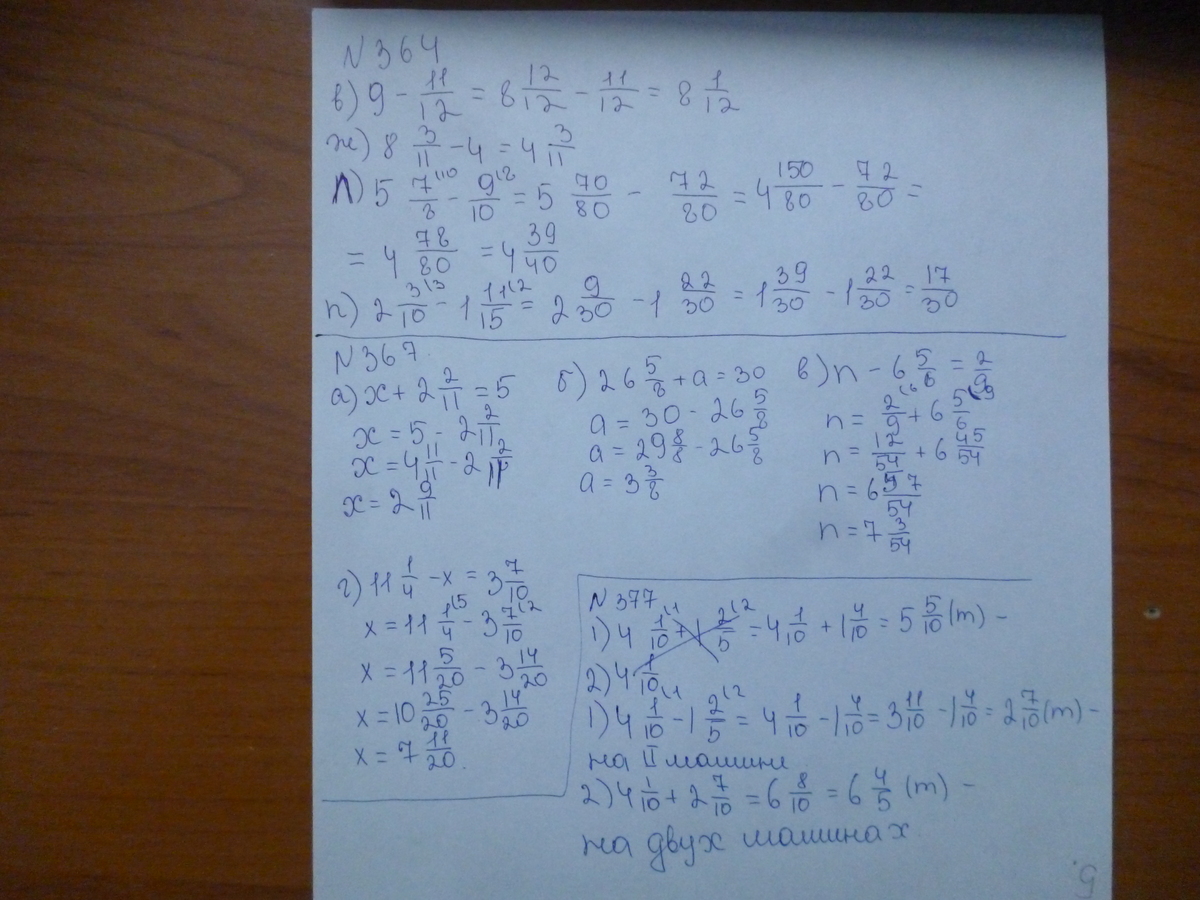 N 364
в) 9 - 11/12 = 8 12/12 - 11/12 = 8 1/12
ж) 8 3/11 - 4 = 4 3/11
л) 5 7/8(10 - 9/10(8 = 5 70/80 - 72/80 = 4 150/80 - 72/80 =
= 4 78/80 = 4 39/40
п) 2 3/10(3 - 1 11/15(2 = 2 9/30 - 1 22/30 = 1 39/30 - 1 22/30 = 17/30
N 367
а) x + 2 2/11 = 5
x = 5 - 2 2/11
x = 4 11/11 - 2 2/11
x = 2 9/11
б) 26 5/8 + a = 30
a = 30 - 26 5/8
a = 29 8/8 - 26 5/8
a = 3 3/8
в) n - 6 5/6 = 2/9
n = 2/9(6 + 6 5/6(9
n = 12/54 + 6 45/54
n = 6 57/54
n = 7 3/54
г) 11 1/4 - x = 3 7/10
x = 11 1/4(5 - 3 7/10(2
x = 11 5/20 - 3 14/20
x = 10 25/20 - 3 14/20
x = 7 11/20.
N 377
1) 4 1/10(1 + 1 2/5(2 = 4 1/10 + 1 4/10 = 5 5/10 (т) -
2) 4 1/10
1) 4 1/10(1 - 1 2/5(2 = 4 1/10 - 1 4/10 = 3 11/10 - 1 4/10 = 2 7/10 (т) -
на II машине
2) 4 1/10 + 2 7/10 = 6 8/10 = 6 4/5 (т) -
на двух машинах.